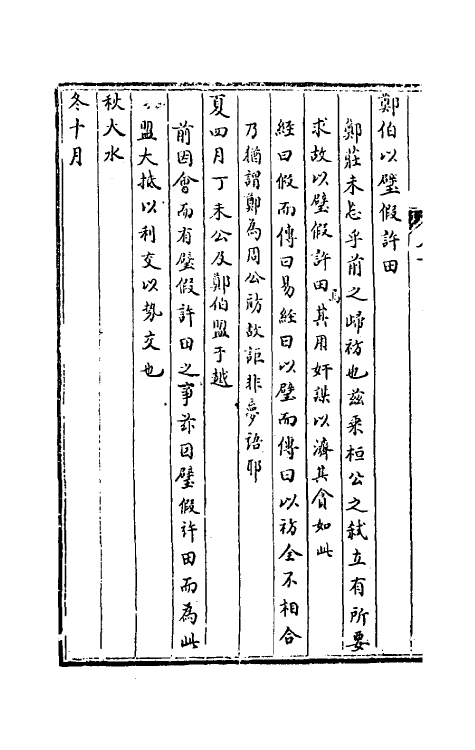 鄭伯以璧假許田
鄭莊未忘乎前之歸祊也茲乘桓公之弒立有所要
求故以璧假許田焉其用奸謀以濟其貪如此
經曰假而傳曰易經曰以璧而傳曰以祊全不相合
乃猶謂鄭為周公祊故詎非夢語耶
夏四月丁未公及鄭伯盟于越
前因會而有璧假許田之事茲因璧假許田而為此
盟大抵以利交以勢交也
秋大水
冬十月